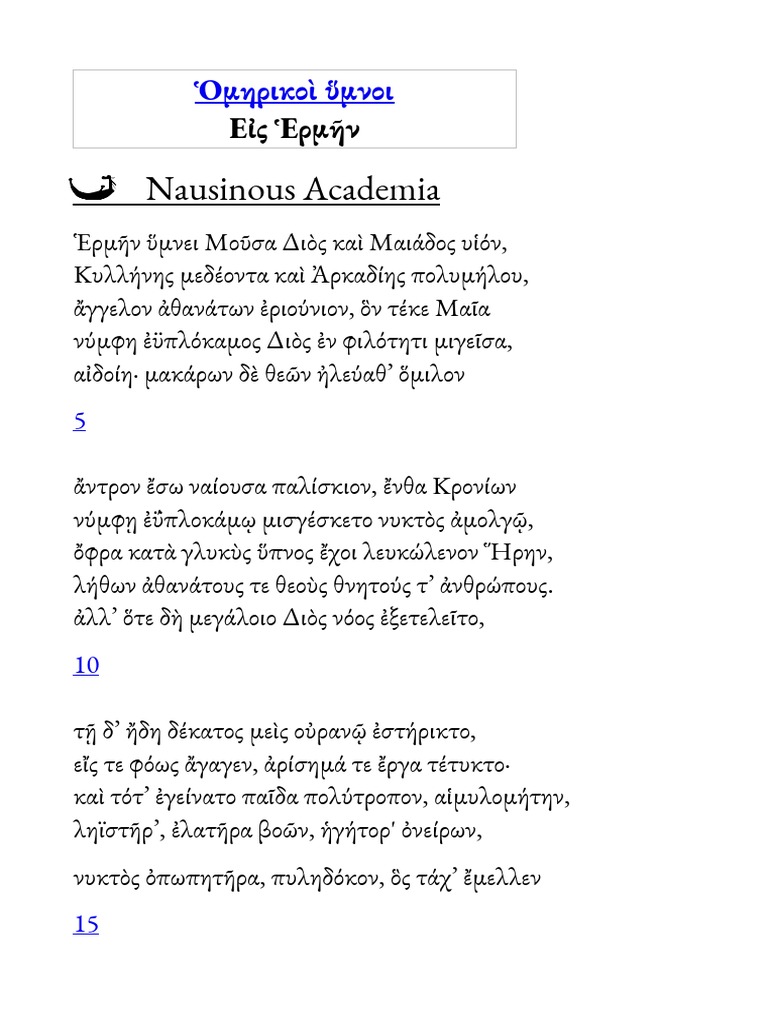 Ὁμηρικοὶ ὕμνοι
Εἰς Ἑρμῆν
Nausinous Academia
Ἑρμῆν ὕμνει Μοῦσα Διὸς καὶ Μαιάδος υἱόν,
Κυλλήνης μεδέοντα καὶ Ἀρκαδίης πολυμήλου,
ἄγγελον ἀθανάτων ἐριούνιον, ὃν τέκε Μαῖα
νύμφη ἐϋπλόκαμος Διὸς ἐν φιλότητι μιγεῖσα,
αἰδοίη· μακάρων δὲ θεῶν ἠλεύαθ’ ὅμιλον
5
ἄντρον ἔσω ναίουσα παλίσκιον, ἔνθα Κρονίων
νύμφῃ ἐϋπλοκάμῳ μισγέσκετο νυκτὸς ἀμολγῷ,
ὄφρα κατὰ γλυκὺς ὕπνος ἔχοι λευκώλενον Ἥρην,
λήθων ἀθανάτους τε θεοὺς θνητούς τ’ ἀνθρώπους.
ἀλλ’ ὅτε δὴ μεγάλοιο Διὸς νόος ἐξετελεῖτο,
10
τῇ δ’ ἤδη δέκατος μεὶς οὐρανῷ ἐστήρικτο,
εἴς τε φόως ἄγαγεν, ἀρίσημά τε ἔργα τέτυκτο·
καὶ τότ’ ἐγείνατο παῖδα πολύτροπον, αἱμυλομήτην,
ληϊστῆρ’, ἐλατῆρα βοῶν, ἡγήτορ' ὀνείρων,
νυκτὸς ὀπωπητῆρα, πυληδόκον, ὃς τάχ’ ἔμελλεν
15